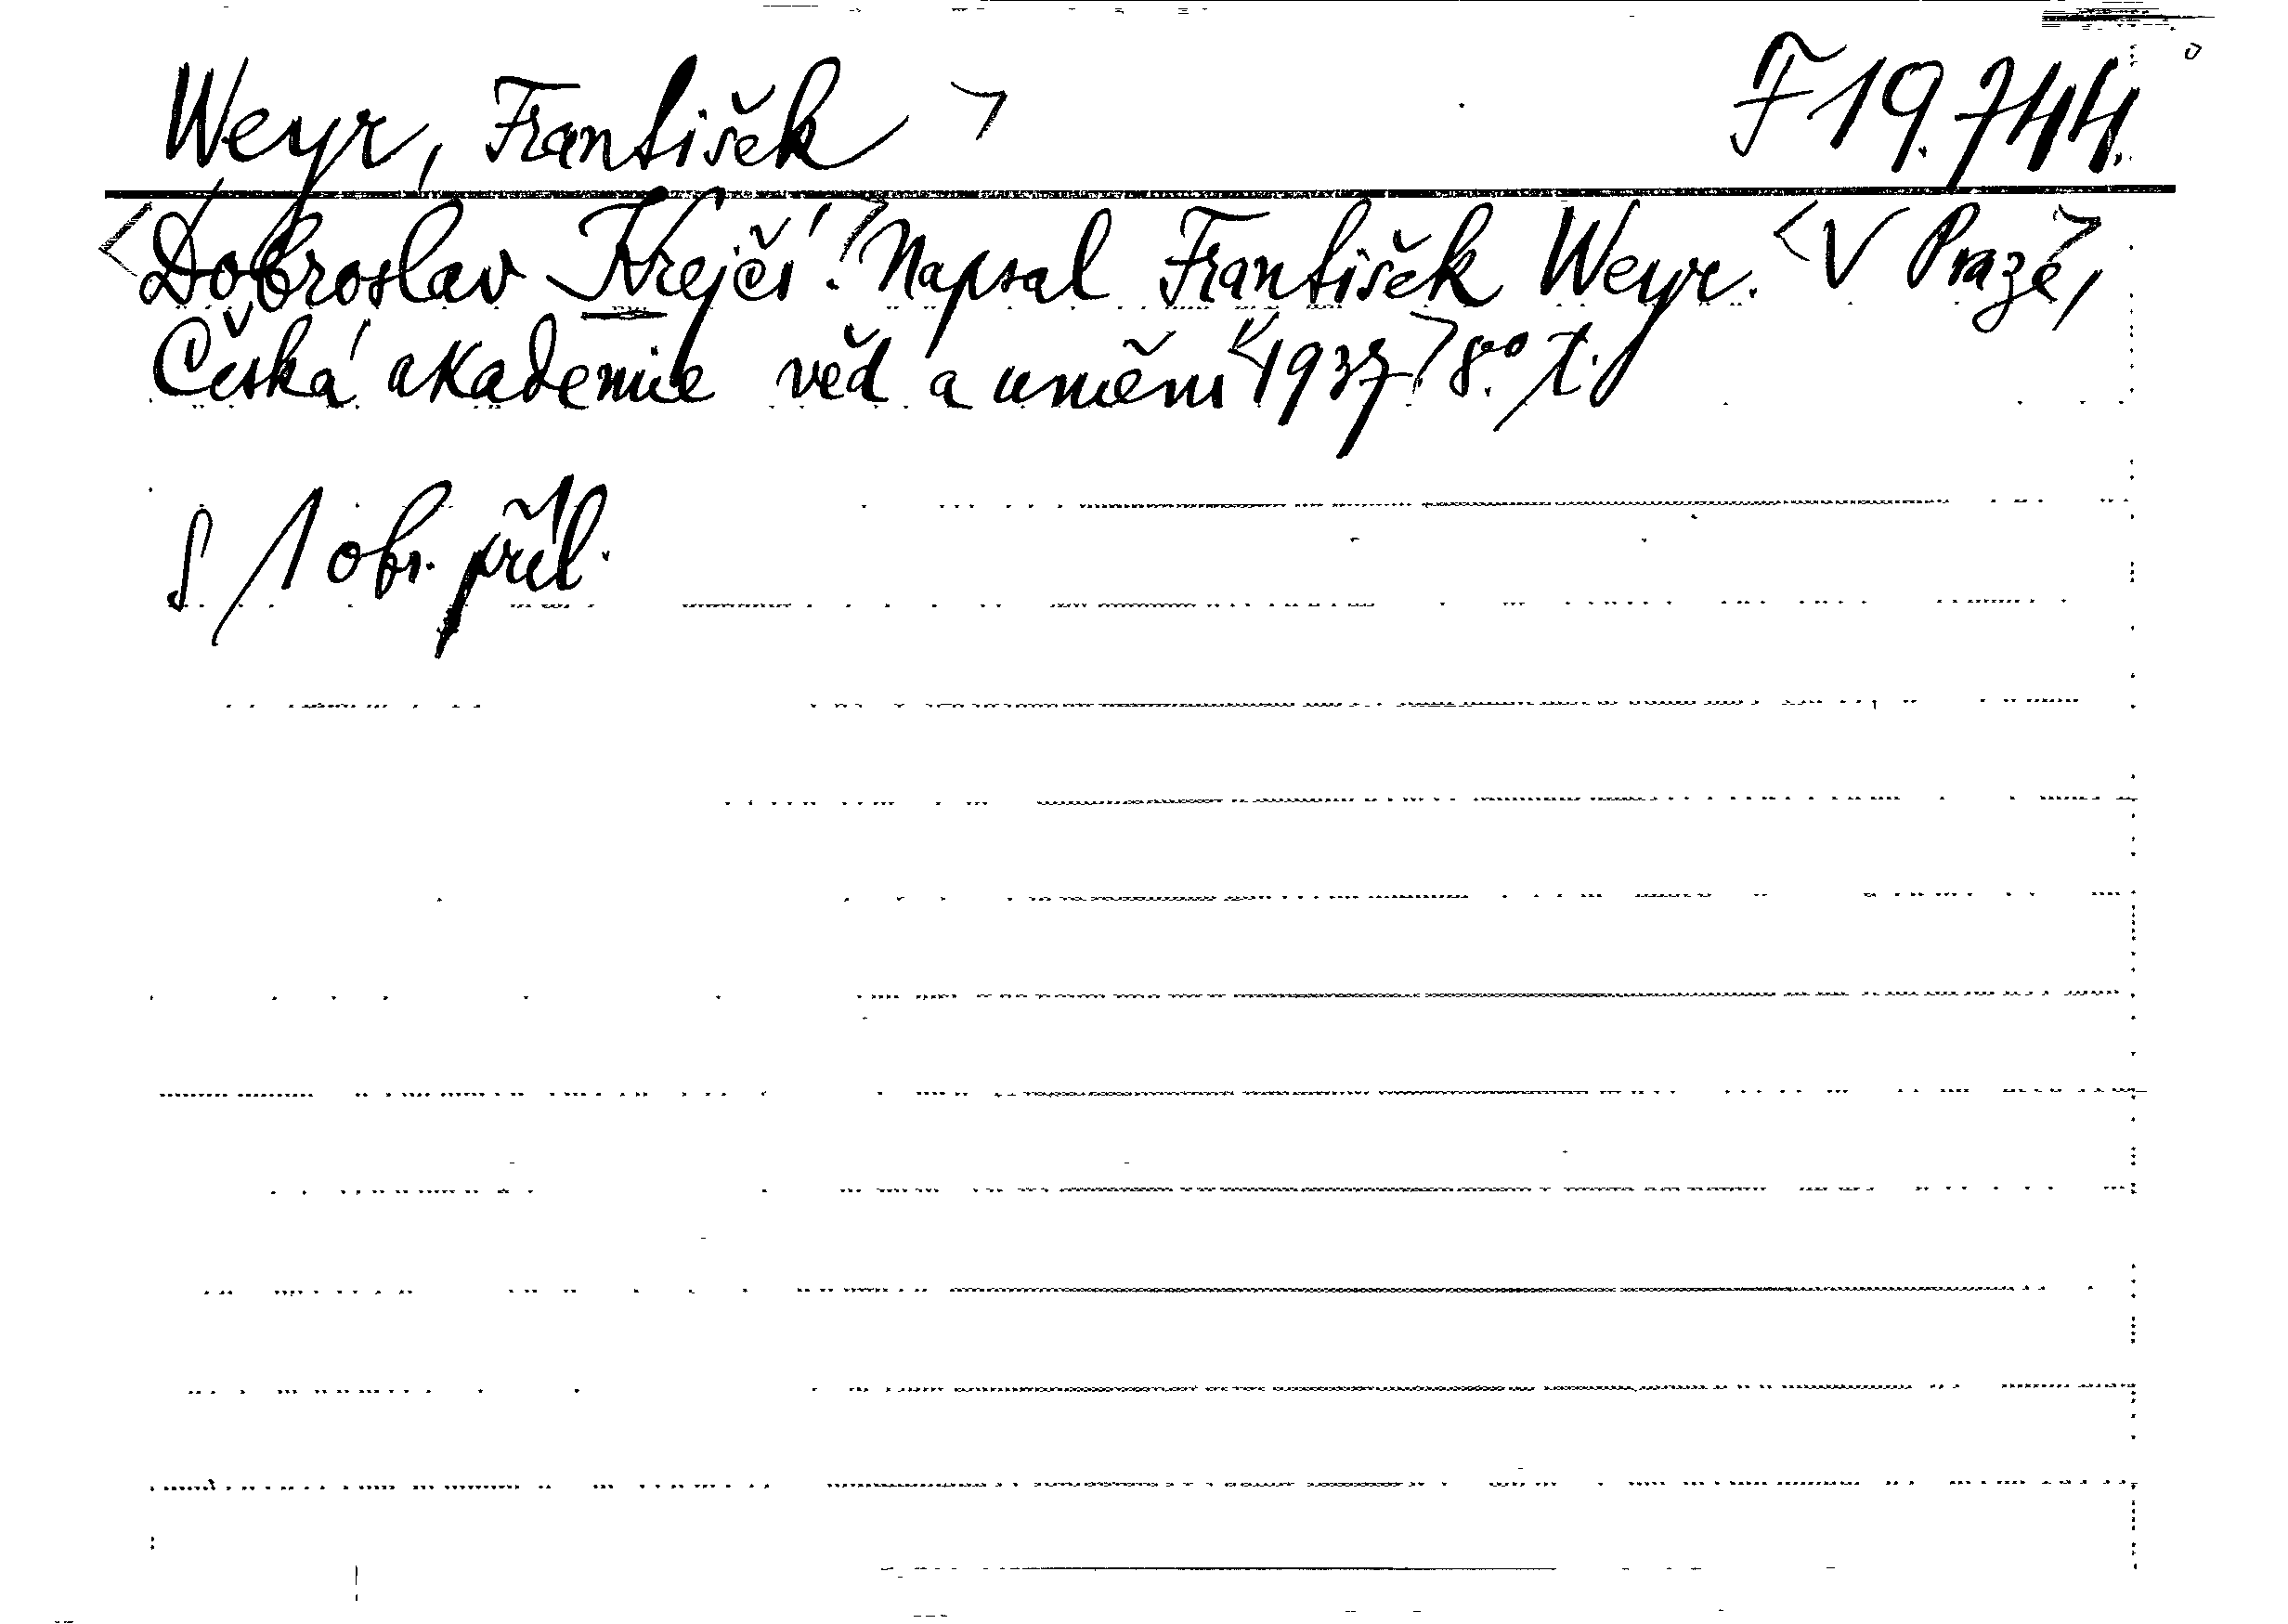 Weyr, František > F 19.744.
<Dobroslav Krejčí.> Napsal František Weyr. <V Praze>,
Česká akademie věd a umění <1937>. 8.° t.
S 1 obr. příl.